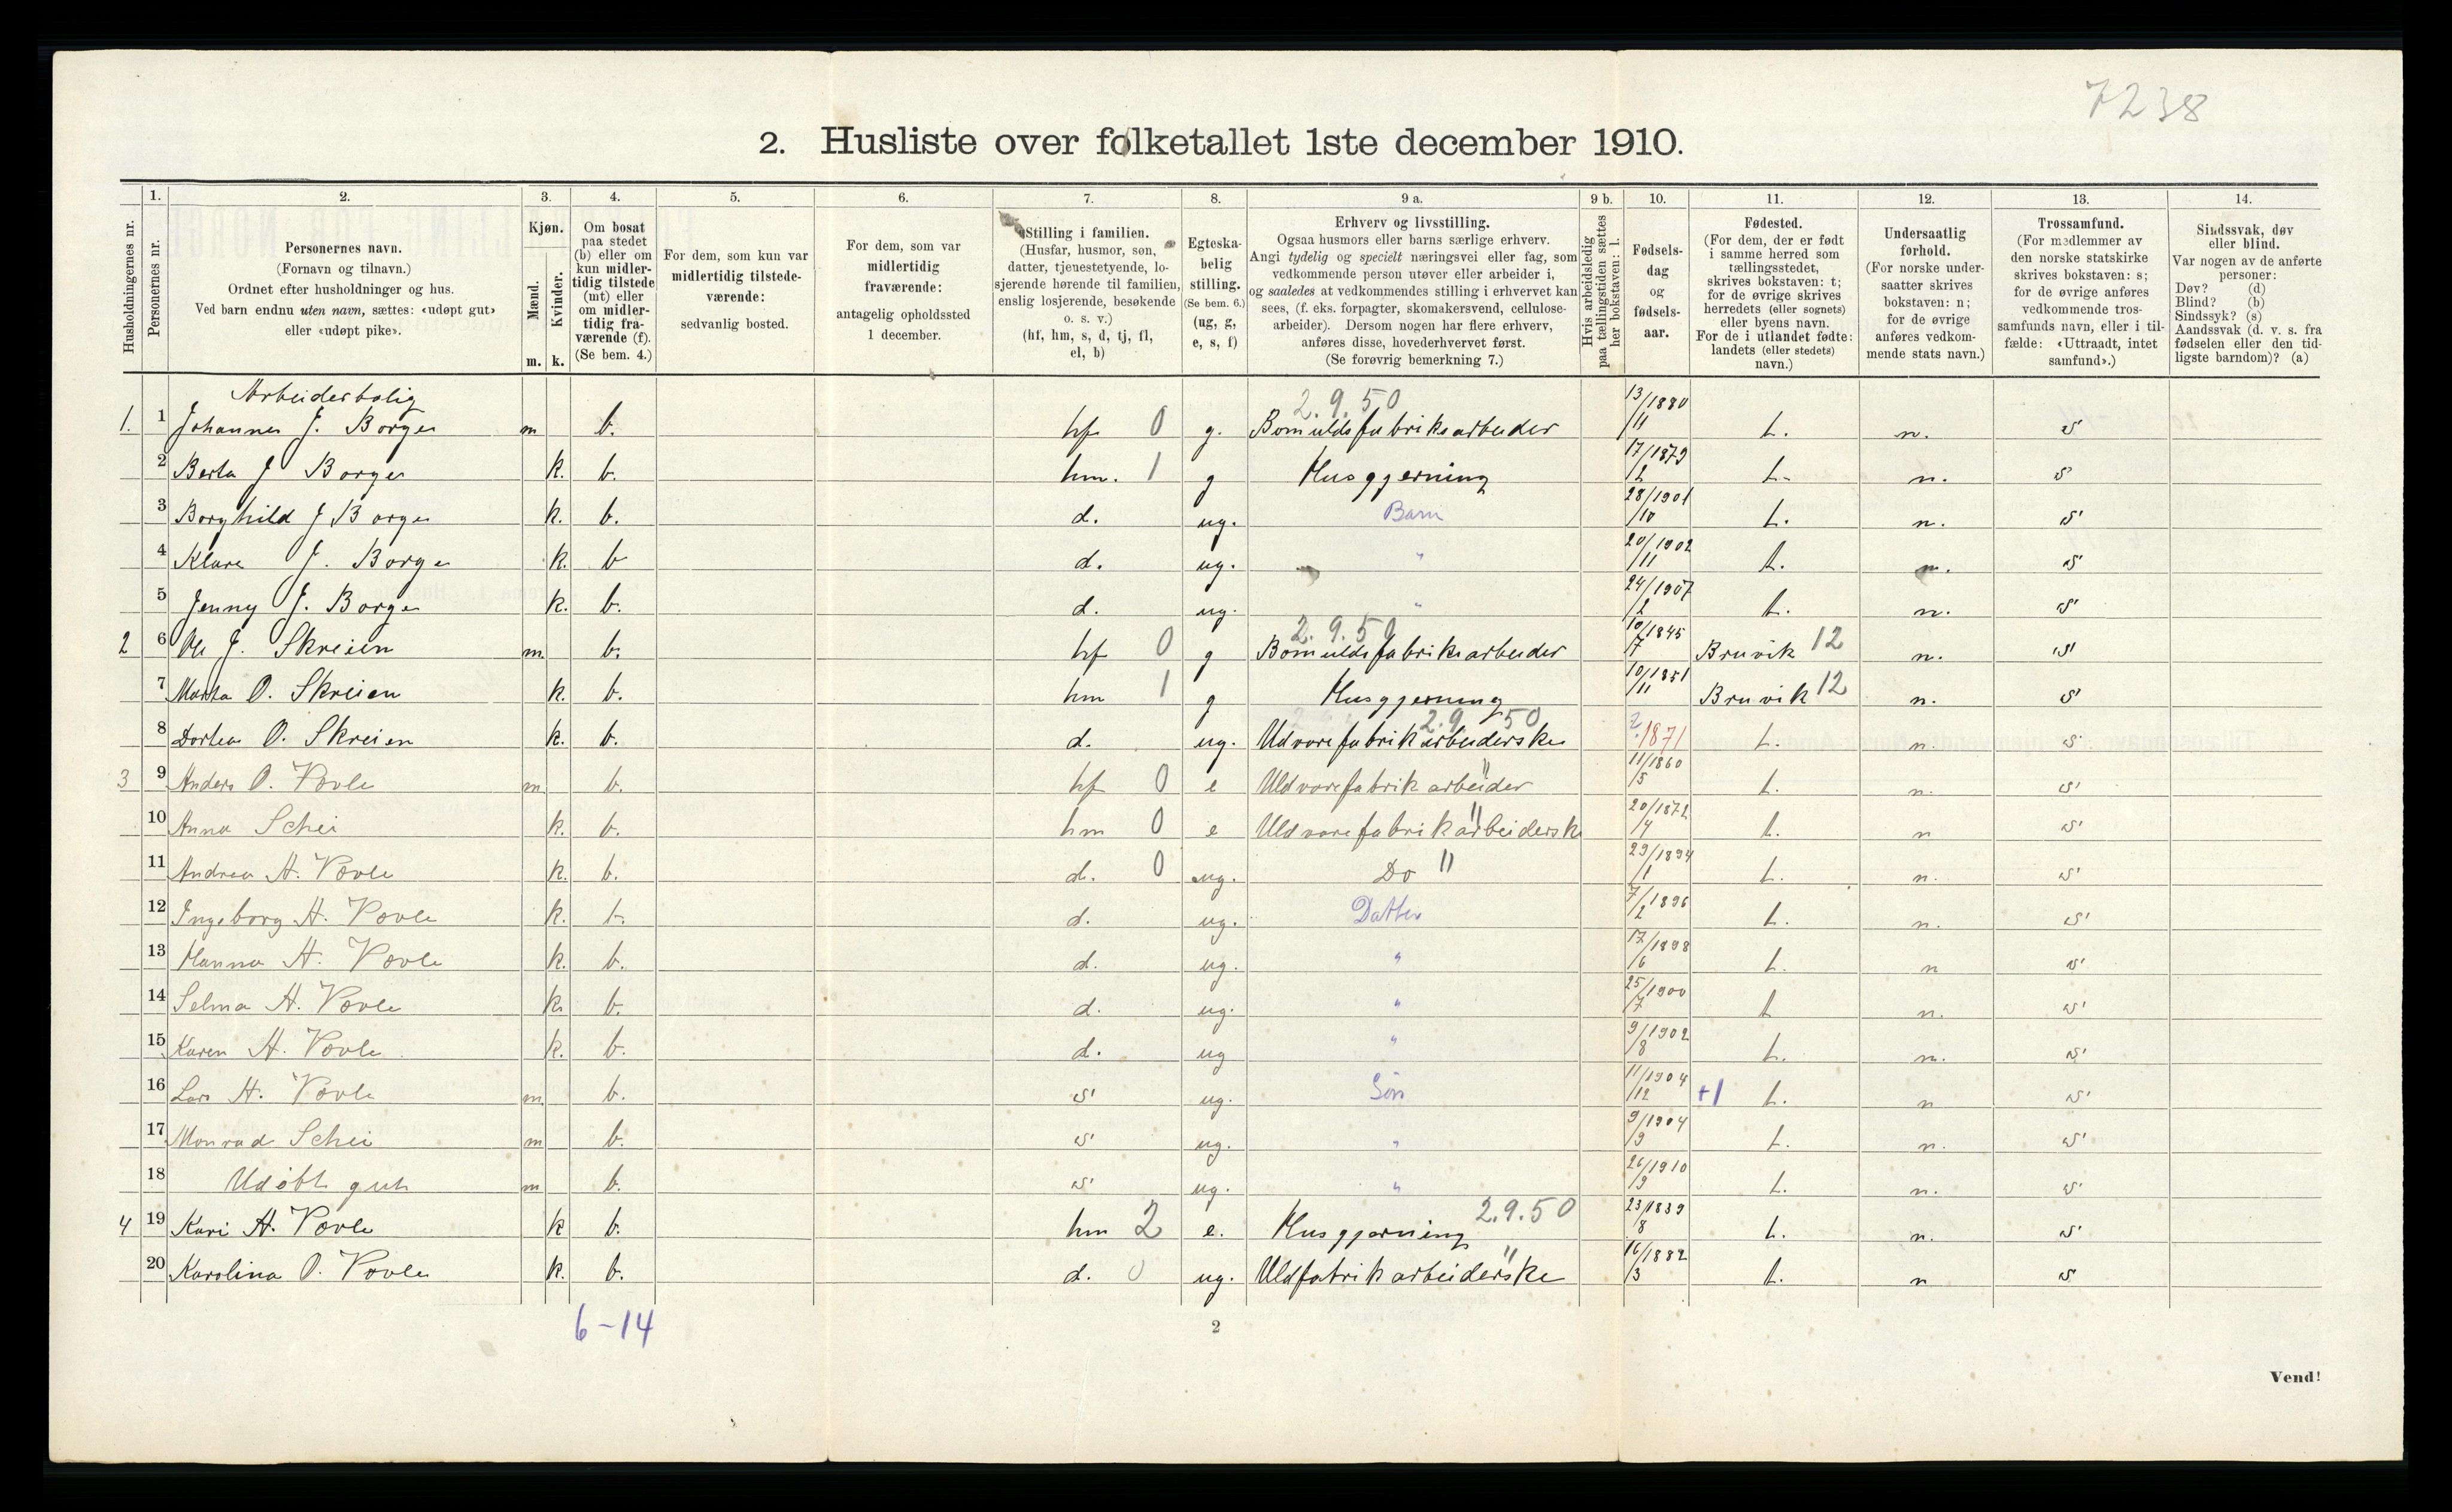 7238
2. Husliste over folketallet 1ste december 1910.
Husholdningernes nr.
1.
Personernes nr.
2.
Personernes navn.
(Fornavn og tilnavn.)
Ordnet efter husholdninger og hus.
Ved barn endnu uten navn, sættes: «udøpt gut»
eller «udøpt pike».
3.
Kjøn.
Mænd.
Kvinder.
m. k.
4.
Om bosat
paa stedet
(b) eller om
kun midler-
tidig tilstede
(mt) eller
om midler-
tidig fra-
værende (f).
(Se bem. 4.)
5.
For dem, som kun var
midlertidig tilstede-
værende:
sedvanlig bosted.
6.
For dem, som var
midlertidig
fraværende:
antagelig opholdssted
1 december.
7.
Stilling i familien.
(Husfar, husmor, søn,
datter, tjenestetyende, lo-
sjerende hørende til familien,
enslig losjerende, besøkende
o. s. v.)
(hf, hm, s, d, tj, fl,
el, b)
8.
Egteska-
belig
stilling.
(Se bem. 6.)
(ug, g,
e, s, f)
9 a.
Erhverv og livsstilling.
Ogsaa husmors eller barns særlige erhverv.
Angi tydelig og specielt næringsvei eller fag, som
vedkommende person utøver eller arbeider i,
og saaledes at vedkommendes stilling i erhvervet kan
sees, (f. eks. forpagter, skomakersvend, cellulose-
arbeider). Dersom nogen har flere erhverv,
anføres disse, hovederhvervet først.
(Se forøvrig bemerkning 7.)
9 b.
Hvis arbeidsledig
paa tællingstiden sættes
her bokstaven: l.
10.
Fødsels-
dag
og
fødsels-
aar.
11.
Fødested.
(For dem, der er født
i samme herred som
tællingsstedet,
skrives bokstaven: t;
for de øvrige skrives
herredets (eller sognets)
eller byens navn.
For de i utlandet fødte:
landets (eller stedets)
navn.)
12.
Undersaatlig
forhold.
(For norske under-
saatter skrives
bokstaven: n;
for de øvrige
anføres vedkom-
mende stats navn.)
13.
Trossamfund.
(For medlemmer av
den norske statskirke
skrives bokstaven: s;
for de øvrige anføres
vedkommende tros-
samfunds navn, eller i til-
fælde: «Uttraadt, intet
samfund».)
14.
Sindssvak, døv
eller blind.
Var nogen av de anførte
personer:
Døv? (d)
Blind? (b)
Sindssyk? (s)
Aandssvak (d. v. s. fra
fødselen eller den tid-
ligste barndom)? (a)
Arbeiderbolig 2.9.50
1. 1 Johannes J. Borge m b. hf 0 g. Bomuldsfabriksarbeider 13/11 1880 t. n. s
2 Berta J Borge k. b. hm. 1 g Husgjerning 17/2 1879 t. n. s
3 Borghild J Borge k. b. d. ug. Barn 28/10 1901 t. n. s
4 Klara J. Borge k. b d. ug. " 20/11 1902 t. n. s
5 Jenny J. Borge k. b. d. ug. " 24/2 1907 t. n. s
2.9.50
2 6 Ole J. Skreien m. b. hf 0 g Bomuldsfabriksarbeider 10/7 1845 Bruvik 12 n. s
7 Marta O. Skreien k. b. hm 1 g Husgjerning 10/11 1851 Bruvik 12 n. s
2.9.50
8 Dortea O. Skreien k. b. d. ug. Udvarefabrikarbeiderske ? 1871 t. n. s
3 9 Anders O. Vovle m. b. hf 0 e Uldvarefabrikarbeider " 11/5 1860 t. n. s
10 Anna Schei k. b. hm 0 e Uldvarefabrikarbeidersk " 20/4 1872 t. n s
11 Andrea A. Vovle k. b. d. 0 ug. Do " 29/1 1894 t. n. s
12 Ingeborg A. Vovle k. b. d. ug. Datter 7/2 1896 t. n. s
13 Hanna A. Vovle k. b. d. ug. " 17/6 1898 t. n s
14 Selma A. Vovle k. b. d. ug. " 25/7 1900 t n. s
15 Karen A. Vovle k. b. d. ug " 9/8 1902 t. n. s
16 Lars A. Vovle m. b. s ug. Søn 11/12 1904 +1 t. n s
17 Monrad Schei m b. s ug. " 9/9 1904 t. n. s
18 Udøbt gut m b. s ug. " 26/9 1910 t. n. s
4 19 Kari A. Vovle k b. hm 2 e. Husgjerning 2.9.50 23/8 1839 t. n. s
20 Karolina O. Vovle k. b. d. 0 ug. Uldfabrikarbeiderske " 16/3 1882 t. n s
6-14
2
Vend!